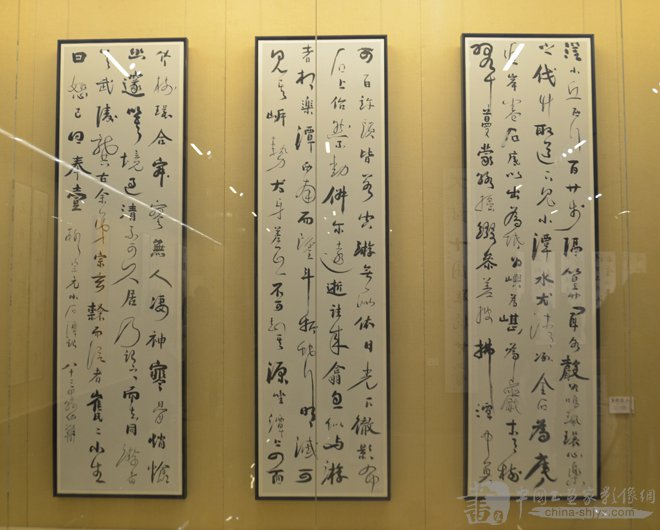 從小丘西行百廿步隔篁竹聞水聲如鳴珮環心樂
之伐竹取道下見小潭水尤清冽全石為底
近岸卷石底以出為坻為嶼為嵁為巖青樹
翠蔓蒙絡搖綴參差披拂潭中魚
可百許頭皆若空游無所依日光下徹影布
石上佁然不動俶爾遠逝往來翕忽似與游
者相樂潭西南而望斗折蛇行明滅可
見其岸勢犬牙差互不可知其源坐潭上四面
竹樹環合寂寥無人凄神寒骨悄愴
幽邃以其境過清不可久居乃記之而去同游者
吳武陵龔古余弟宗玄隸而從者崔氏二小生
曰恕己曰奉壹 柳宗元小石潭記